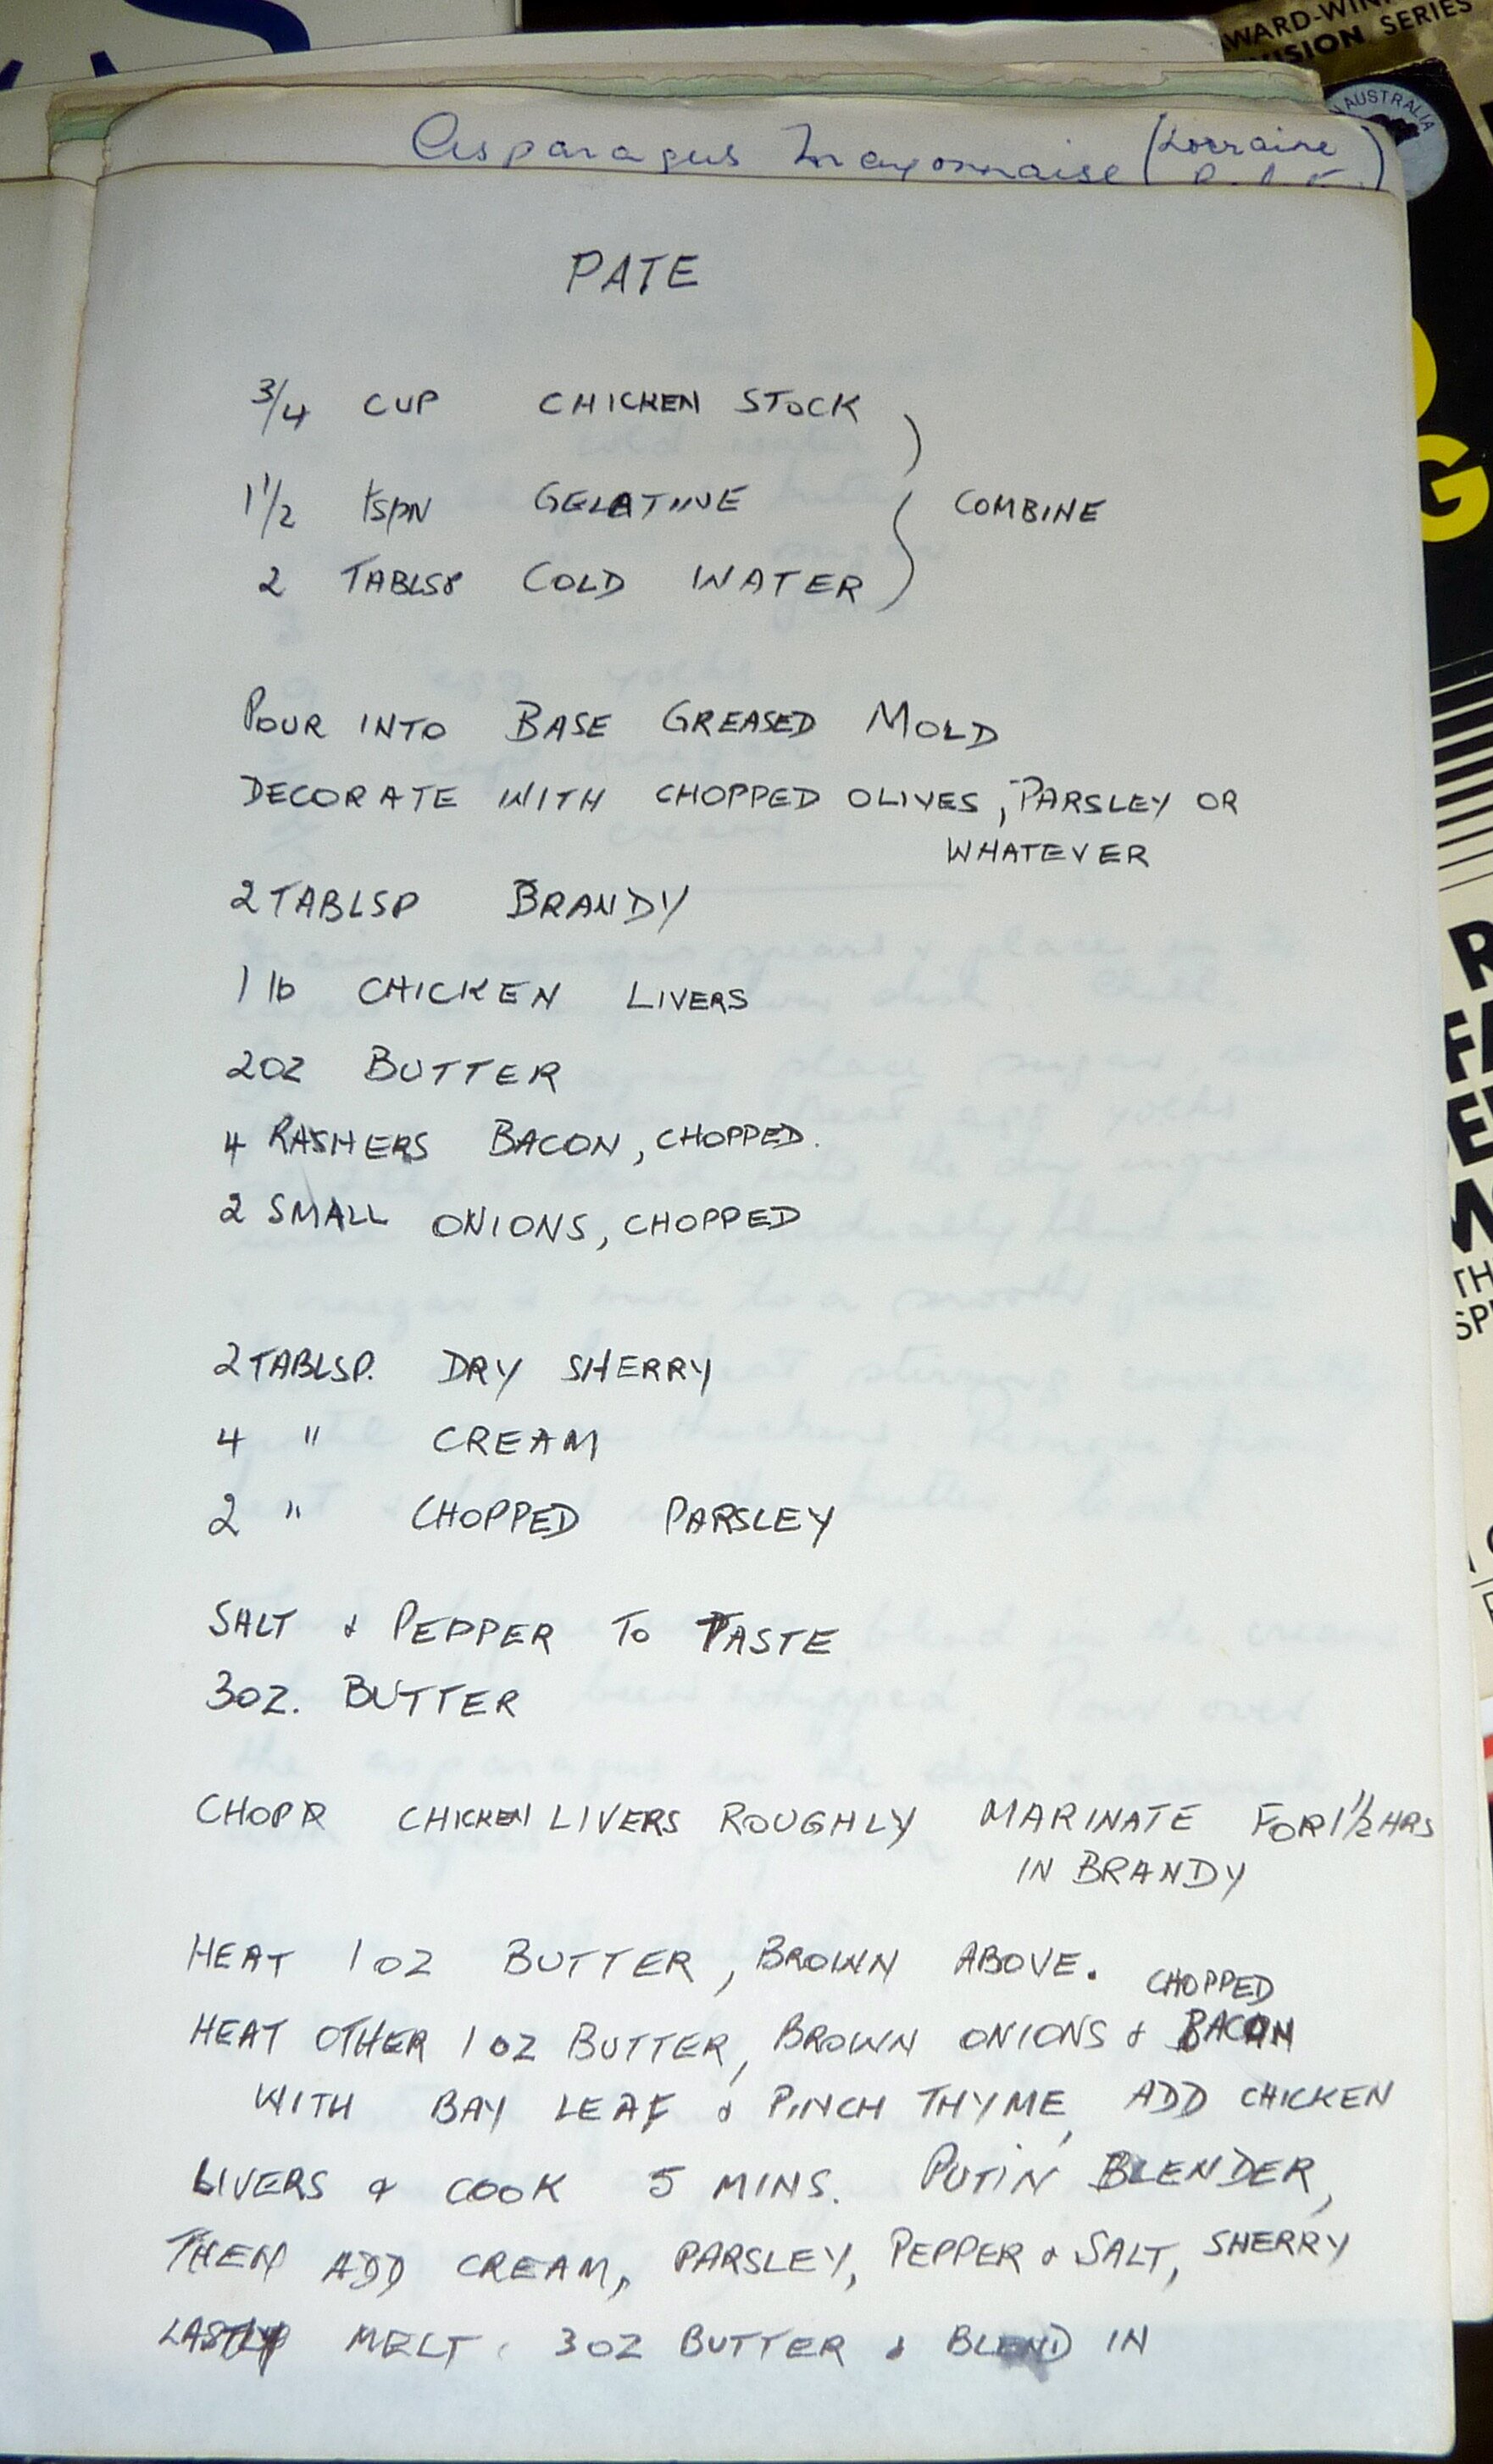 S
AWARD-WIN
VISION SERIES
AUSTRALIA
Asparagus Mayonnaise (Lorraine
PATE
3/4 CUP CHICKEN STOCK
1 1/2 tSPN GELATINE
COMBINE
2 TABLSP COLD WATER
POUR INTO BASE GREASED MOLD
DECORATE WITH CHOPPED OLIVES, PARSLEY OR
WHATEVER
2 TABLSP BRANDY
1 lb CHICKEN LIVERS
2OZ BUTTER
4 RASHERS BACON, CHOPPED.
2 SMALL ONIONS, CHOPPED
2 TABLSP. DRY SHERRY
4 " CREAM
2 " CHOPPED PARSLEY
SALT & PEPPER TO TASTE
3OZ. BUTTER
CHOP CHICKEN LIVERS ROUGHLY MARINATE FOR 1 1/2 HRS
IN BRANDY
HEAT 1 OZ BUTTER, BROWN ABOVE.
CHOPPED
HEAT OTHER 1 OZ BUTTER, BROWN ONIONS & BACON
WITH BAY LEAF & PINCH THYME, ADD CHICKEN
LIVERS & COOK 5 MINS. PUT IN BLENDER,
THEN ADD CREAM, PARSLEY, PEPPER & SALT, SHERRY
LASTLY MELT 3OZ BUTTER & BLEND IN
G